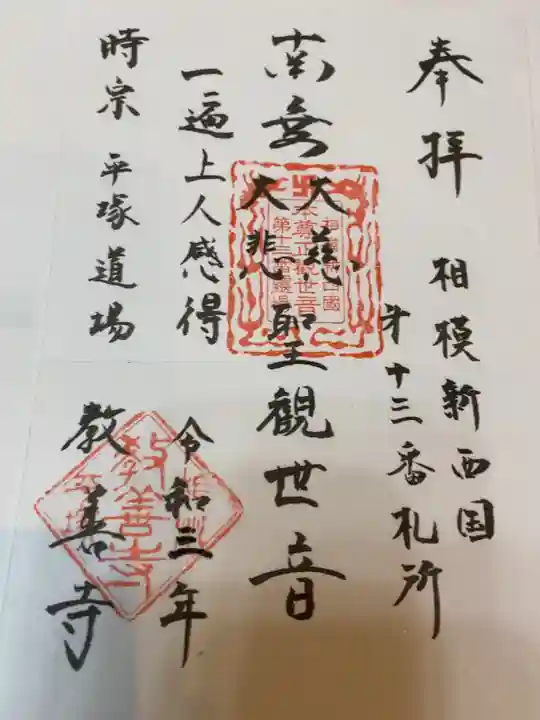 奉拝
相模新西国
第十三番札所
南無大慈大悲聖観世音
一遍上人感得
令和三年
時宗 平塚道場
教善寺
相模新西國
本尊正観世音
第十三番霊場
教善寺